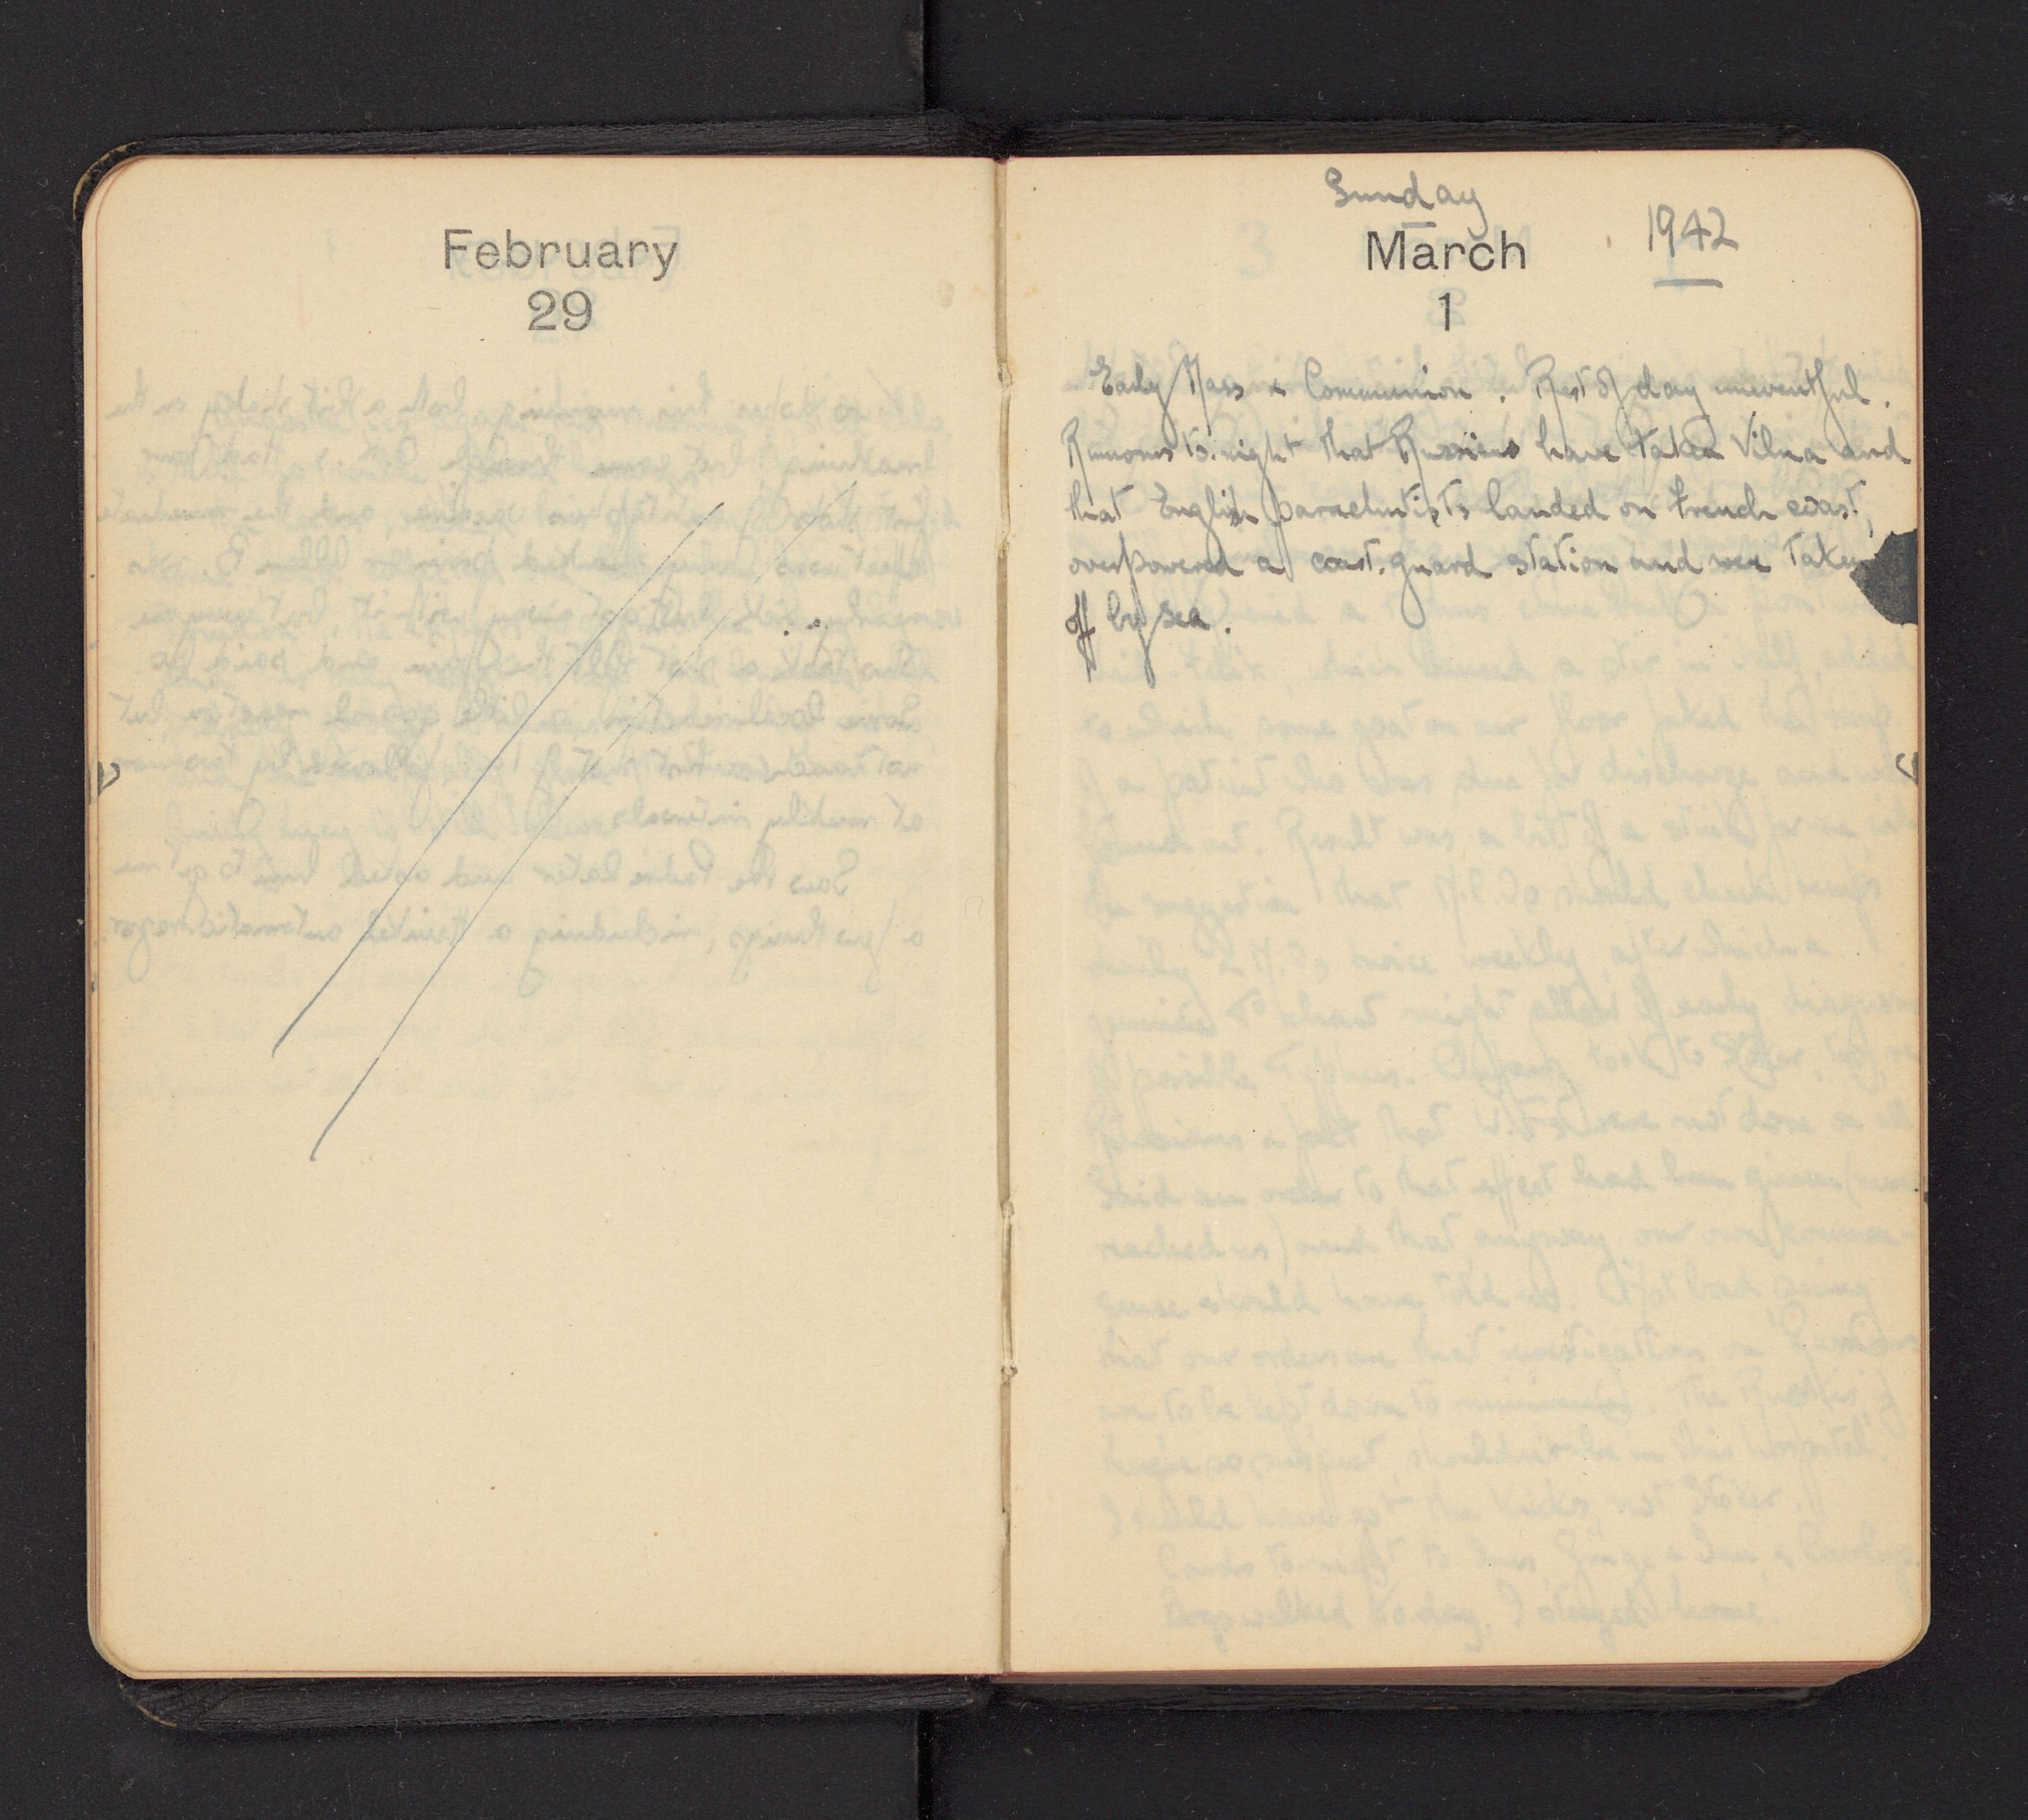 February
29
Sunday
March 1942
1
Early Mass & Communion. Rest of day uneventful.
Rumours to.night that Russians have taken Vilna and
that English parachutists landed on French coast,
overpowered a coast.guard station and were taken
off by sea.